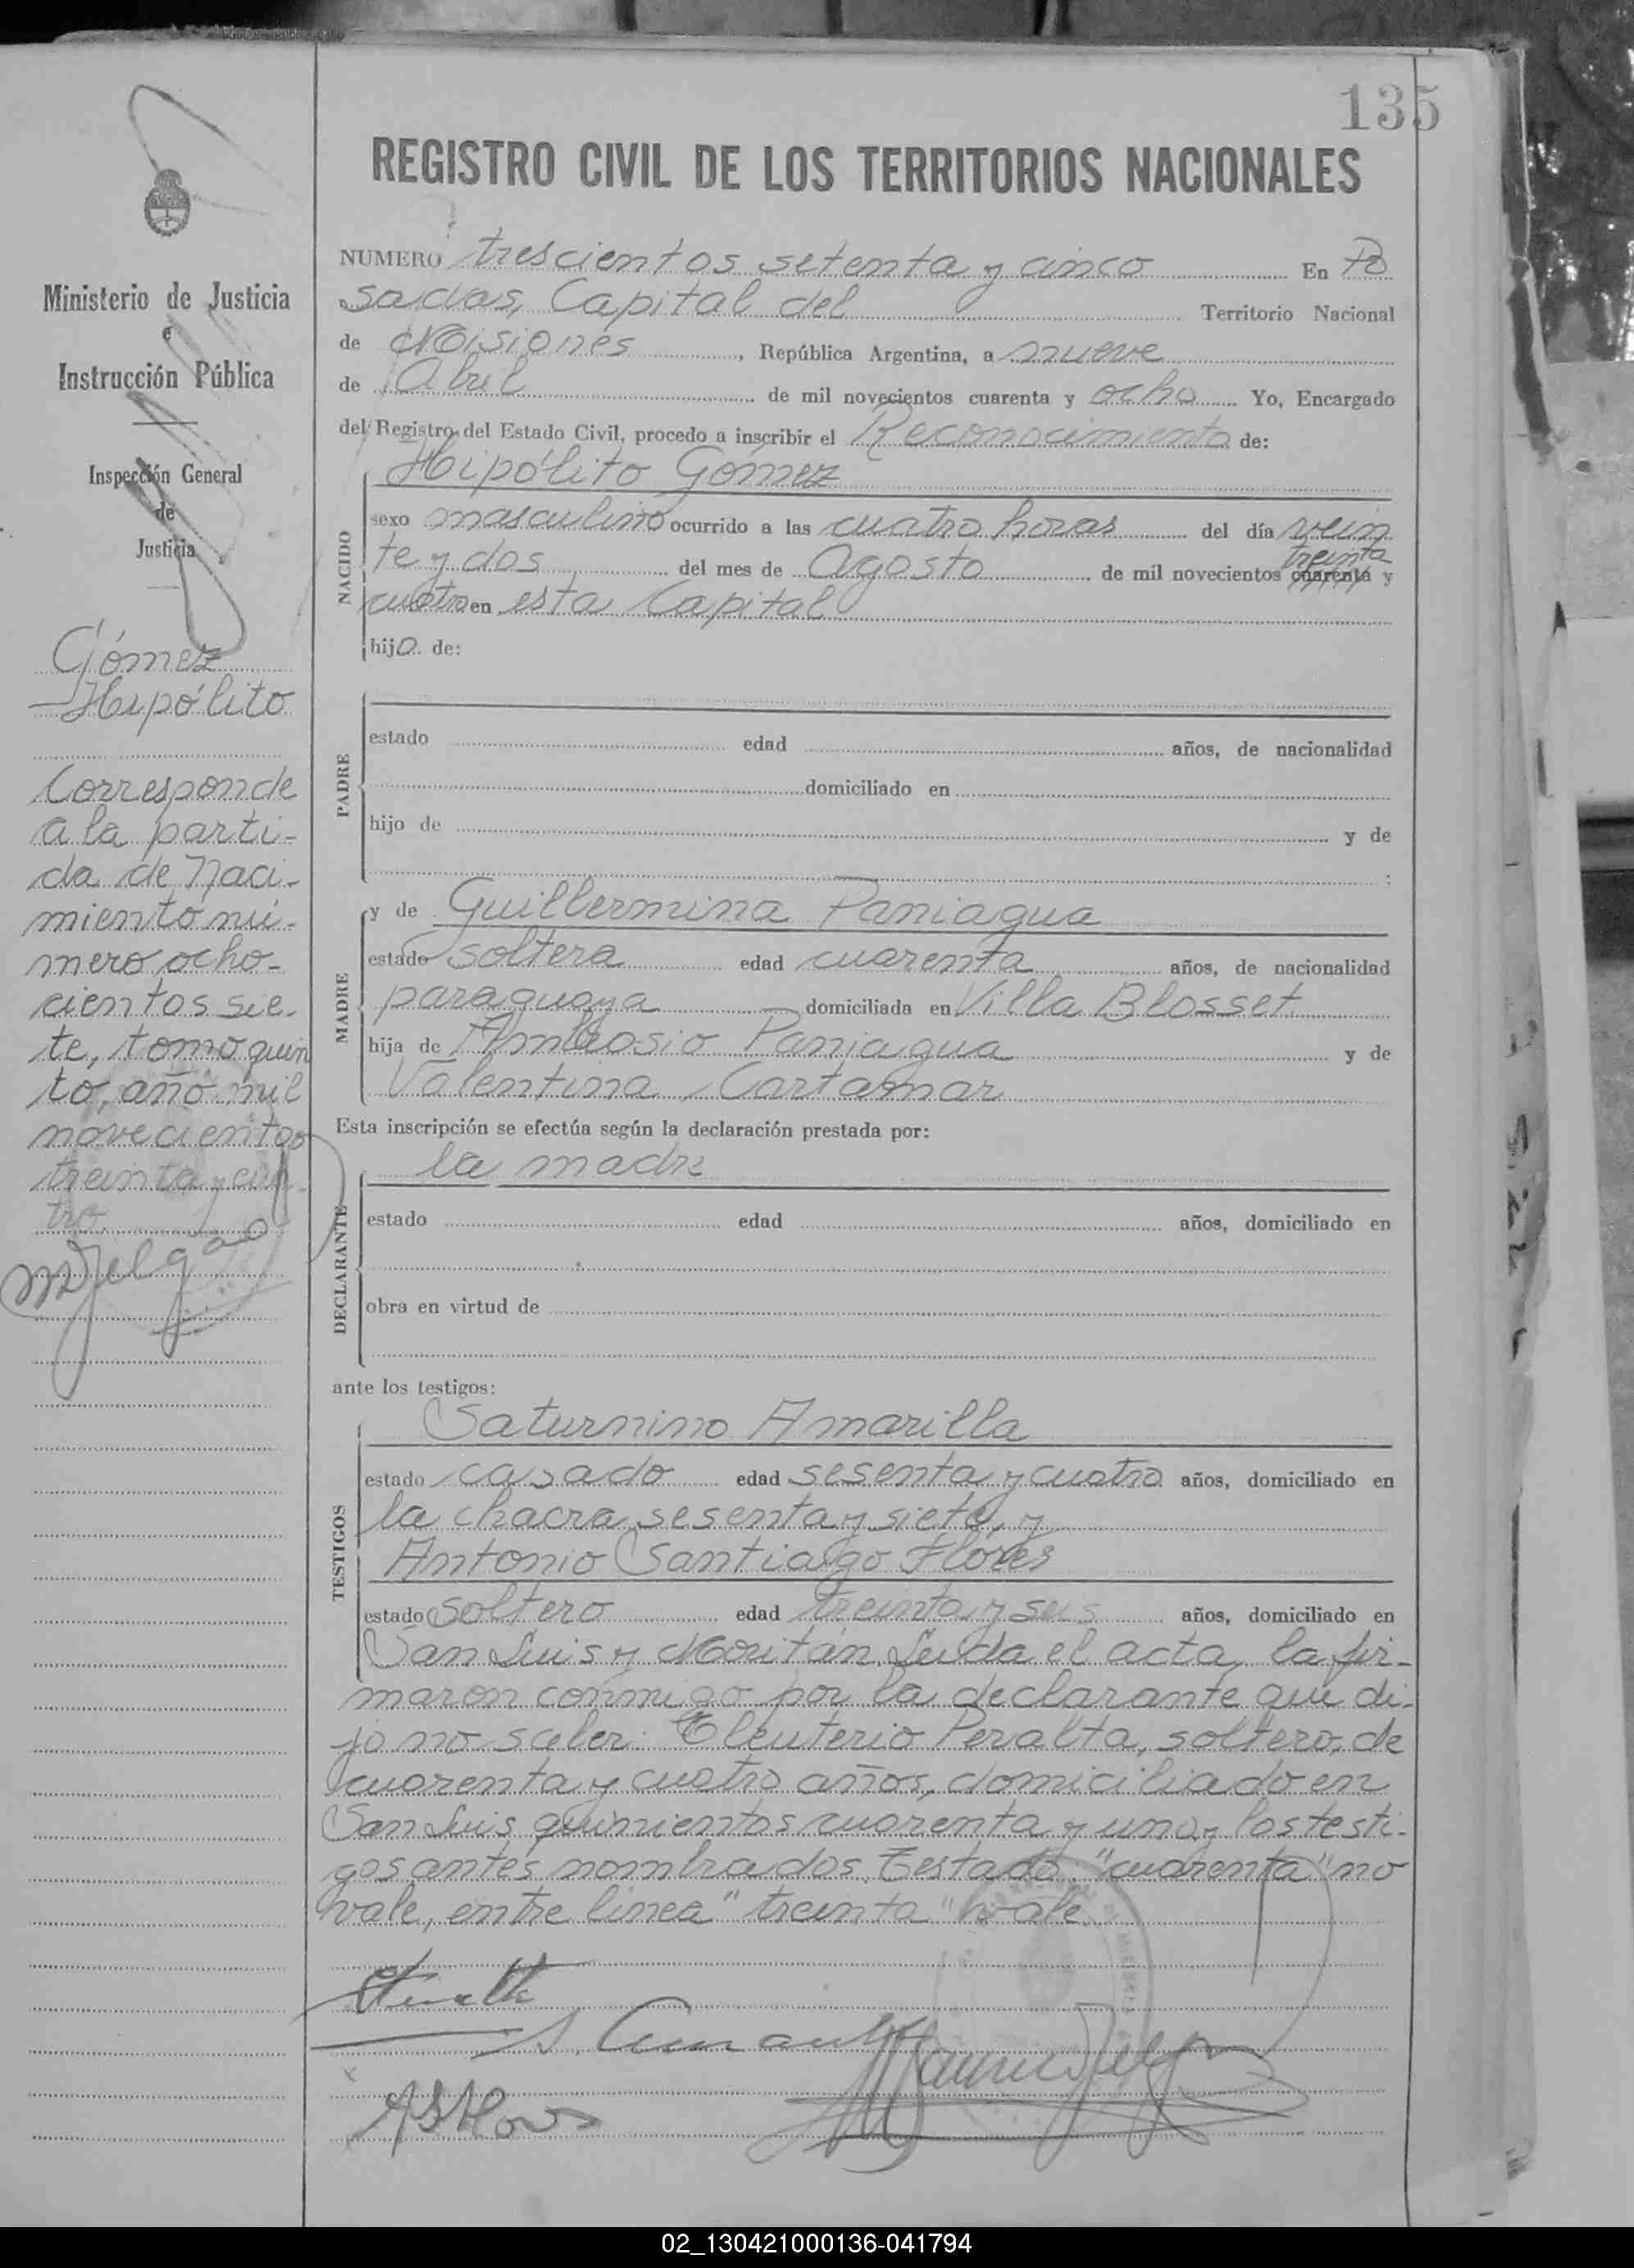 135
REGISTRO CIVIL DE LOS TERRITORIOS NACIONALES
Ministerio de Justicia
e
Instrucción Pública
Inspección General
de
Justicia
Gómez
Hipólito
Corresponde
a la parti-
da de Naci-
miento nú-
mero ocho-
cientos sie-
te, tomo quin
to, año mil
novecientos
treinta y cua-
tro.
NUMERO trescientos setenta y cinco En Po
sadas, Capital del Territorio Nacional
de Misiones, República Argentina, a nueve
de Abril de mil novecientos cuarenta y ocho Yo, Encargado
del Registro del Estado Civil, procedo a inscribir el Reconocimiento de:
Hipólito Gómez
NACIDO
sexo masculino ocurrido a las cuatro horas del día vein
treinta
te y dos del mes de Agosto de mil novecientos cuarenta y
cuatro en esta Capital
hijo de:
PADRE
estado edad años, de nacionalidad
domiciliado en
hijo de y de
:
MADRE
y de Guillermina Paniagua
estado soltera edad cuarenta años, de nacionalidad
paraguaya domiciliada en Villa Blosset
hija de Ambrosio Paniagua y de
Valentina Cartamar
Esta inscripción se efectúa según la declaración prestada por:
la madre
DECLARANTE
estado edad años, domiciliado en
obra en virtud de
ante los testigos:
TESTIGOS
Saturnino Amarilla
estado casado edad sesenta y cuatro años, domiciliado en
la chacra sesenta y siete, y
Antonio Santiago Flores
estado soltero edad treinta y seis años, domiciliado en
San Luis y Moritán. Leída el acta, la fir-
maron conmigo por la declarante que di-
jo no saber: Eleuterio Peralta, soltero, de
cuarenta y cuatro años, domiciliado en
San Luis quinientos cuarenta y uno y los testi-
gos antes nombrados. Testado "cuarenta" no
vale, entre línea "treinta" vale.
02_130421000136-041794